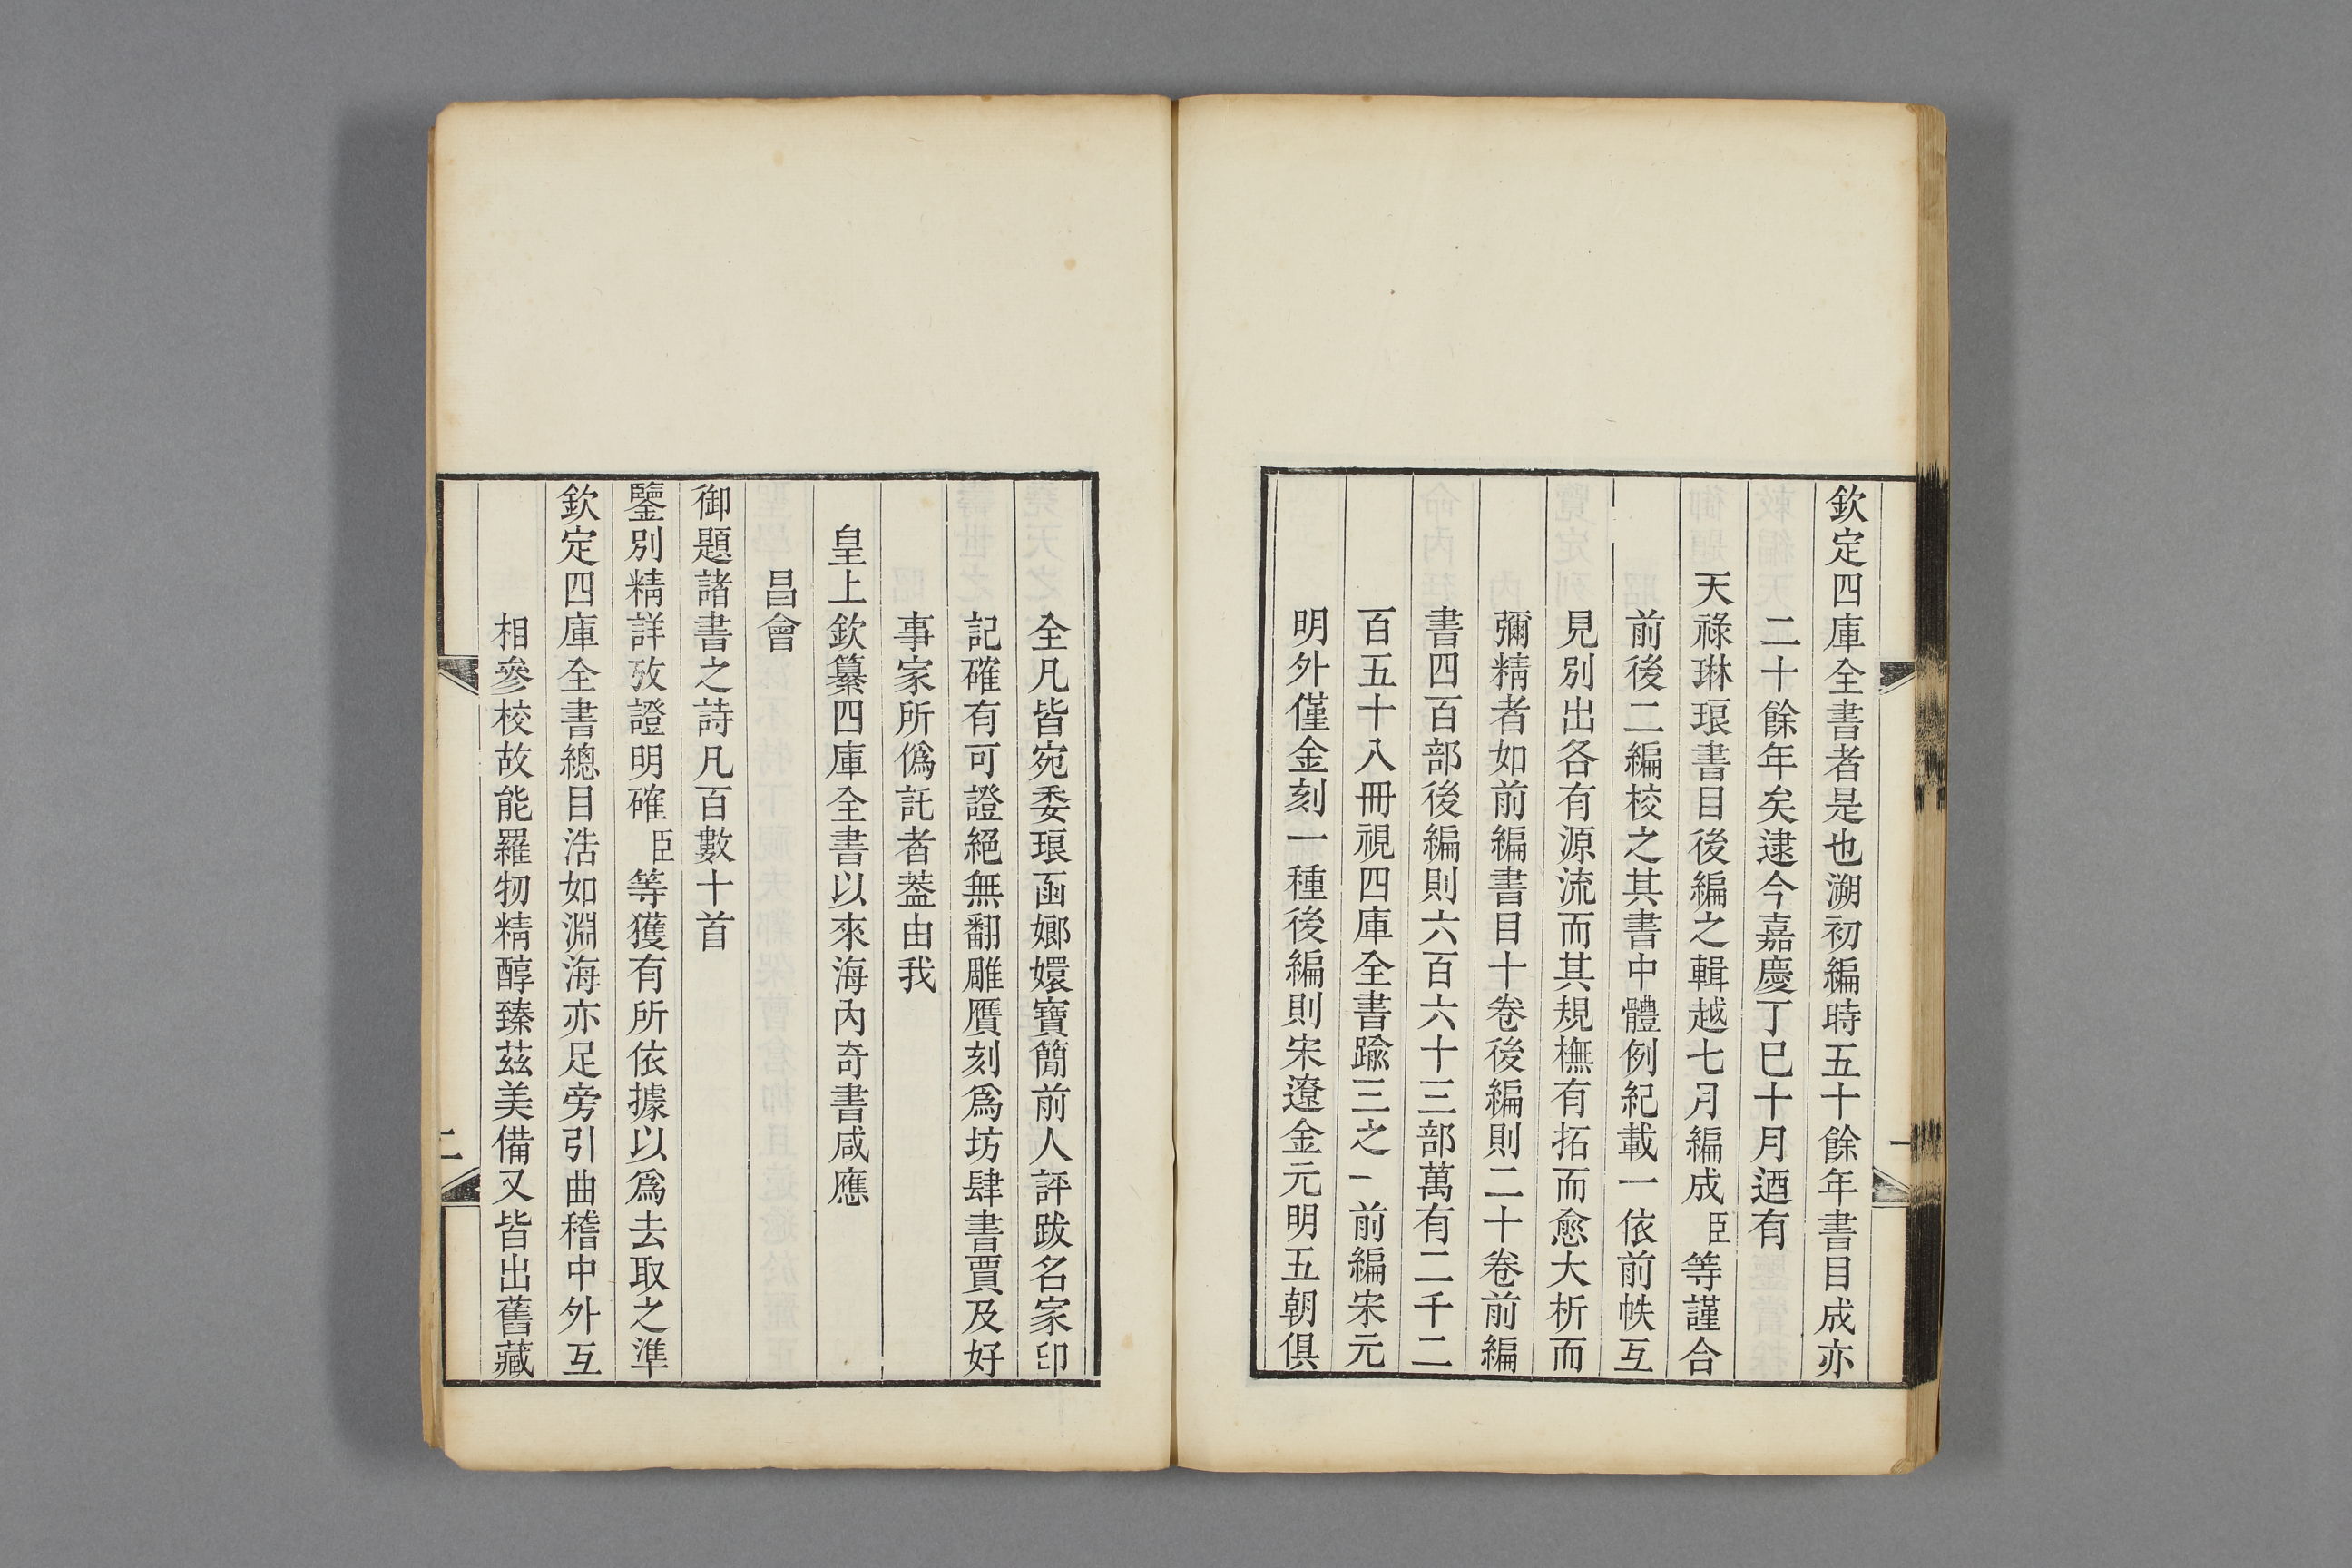 欽定四庫全書者是也溯初編時五十餘年書目成亦
二十餘年矣逮今嘉慶丁巳十月迺有
天祿琳琅書目後編之輯越七月編成臣等謹合
前後二編校之其書中體例紀載一依前帙互
見別出各有源流而其規橅有拓而愈大析而
彌精者如前編書目十卷後編則二十卷前編
書四百部後編則六百六十三部萬有二千二
百五十八冊視四庫全書踰三之一前編宋元
明外僅金刻一種後編則宋遼金元明五朝俱
一
全凡皆宛委琅函嫏嬛寶簡前人評跋名家印
記確有可證絕無翻雕贋刻爲坊肆書賈及好
事家所僞託者葢由我
皇上欽纂四庫全書以來海內奇書咸應
昌會
御題諸書之詩凡百數十首
鑒別精詳攷證明確臣等獲有所依據以爲去取之準
欽定四庫全書總目浩如淵海亦足旁引曲稽中外互
相參校故能羅牣精醇臻茲美備又皆出舊藏
二